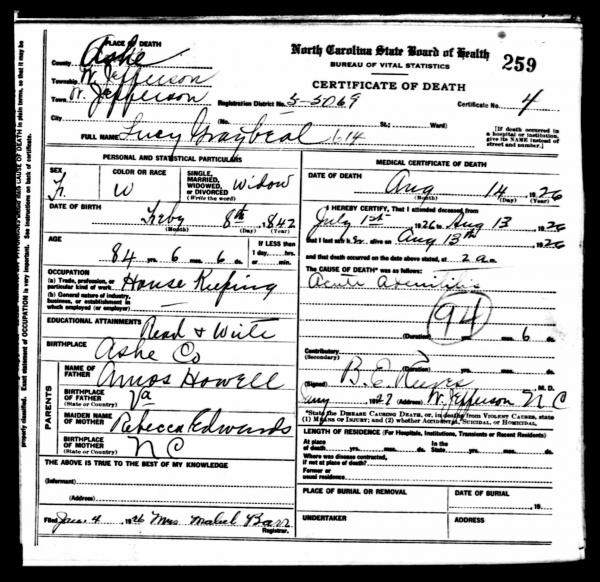 PLACE OF DEATH
County Ashe
Township W. Jefferson
Town W. Jefferson
City
North Carolina State Board of Health
BUREAU OF VITAL STATISTICS
259
CERTIFICATE OF DEATH
Registration District No. 5-5069
Certificate No. 4
(No. St.; Ward)
FULL NAME Lucy Graybeal 1.14
[If death occurred in a hospital or institution, give its NAME instead of street and number.]
PERSONAL AND STATISTICAL PARTICULARS
SEX
COLOR OR RACE
W
SINGLE, MARRIED, WIDOWED, or DIVORCED (Write the word)
Widow
DATE OF BIRTH
8th, 1842
(Month) (Day) (Year)
AGE
84 yrs. 6 mos. 6 ds.
If LESS than 1 day, hrs. or min.
OCCUPATION
(a) Trade, profession, or particular kind of work House Keeping
(b) General nature of industry, business, or establishment in which employed (or employer)
EDUCATIONAL ATTAINMENTS Read & Write
BIRTHPLACE Ashe Co
PARENTS
NAME OF FATHER Amos Howell
BIRTHPLACE OF FATHER (State or Country) Va
MAIDEN NAME OF MOTHER Rebecca Edwards
BIRTHPLACE OF MOTHER (State or Country) N C
THE ABOVE IS TRUE TO THE BEST OF MY KNOWLEDGE
(Informant)
(Address)
Filed 4 1926 Mrs Mabel Barr
Registrar.
MEDICAL CERTIFICATE OF DEATH
DATE OF DEATH
Aug 14 1926
(Month) (Day) (Year)
I HEREBY CERTIFY, That I attended deceased from
July 1st 1926 to Aug 13 1926
that I last saw h er alive on Aug 13th 1926
and that death occurred on the date above stated, at 2 a m.
The CAUSE OF DEATH* was as follows:
Acute
94
(Duration) mos. 6 ds.
Contributory (Secondary)
(Duration) yrs. mos. ds.
(Signed) B. E. Reeves M. D.
(Address) W. Jefferson N C
*State the DISEASE CAUSING DEATH, or, in deaths from VIOLENT CAUSES, state
(1) MEANS OF INJURY; and (2) whether ACCIDENTAL, SUICIDAL, or HOMICIDAL.
LENGTH OF RESIDENCE (For Hospitals, Institutions, Transients or Recent Residents)
At place of death yrs. mos. ds. In the State yrs. mos. ds.
Where was disease contracted, if not at place of death?
Former or usual residence
PLACE OF BURIAL OR REMOVAL
DATE OF BURIAL
, 19
UNDERTAKER
ADDRESS